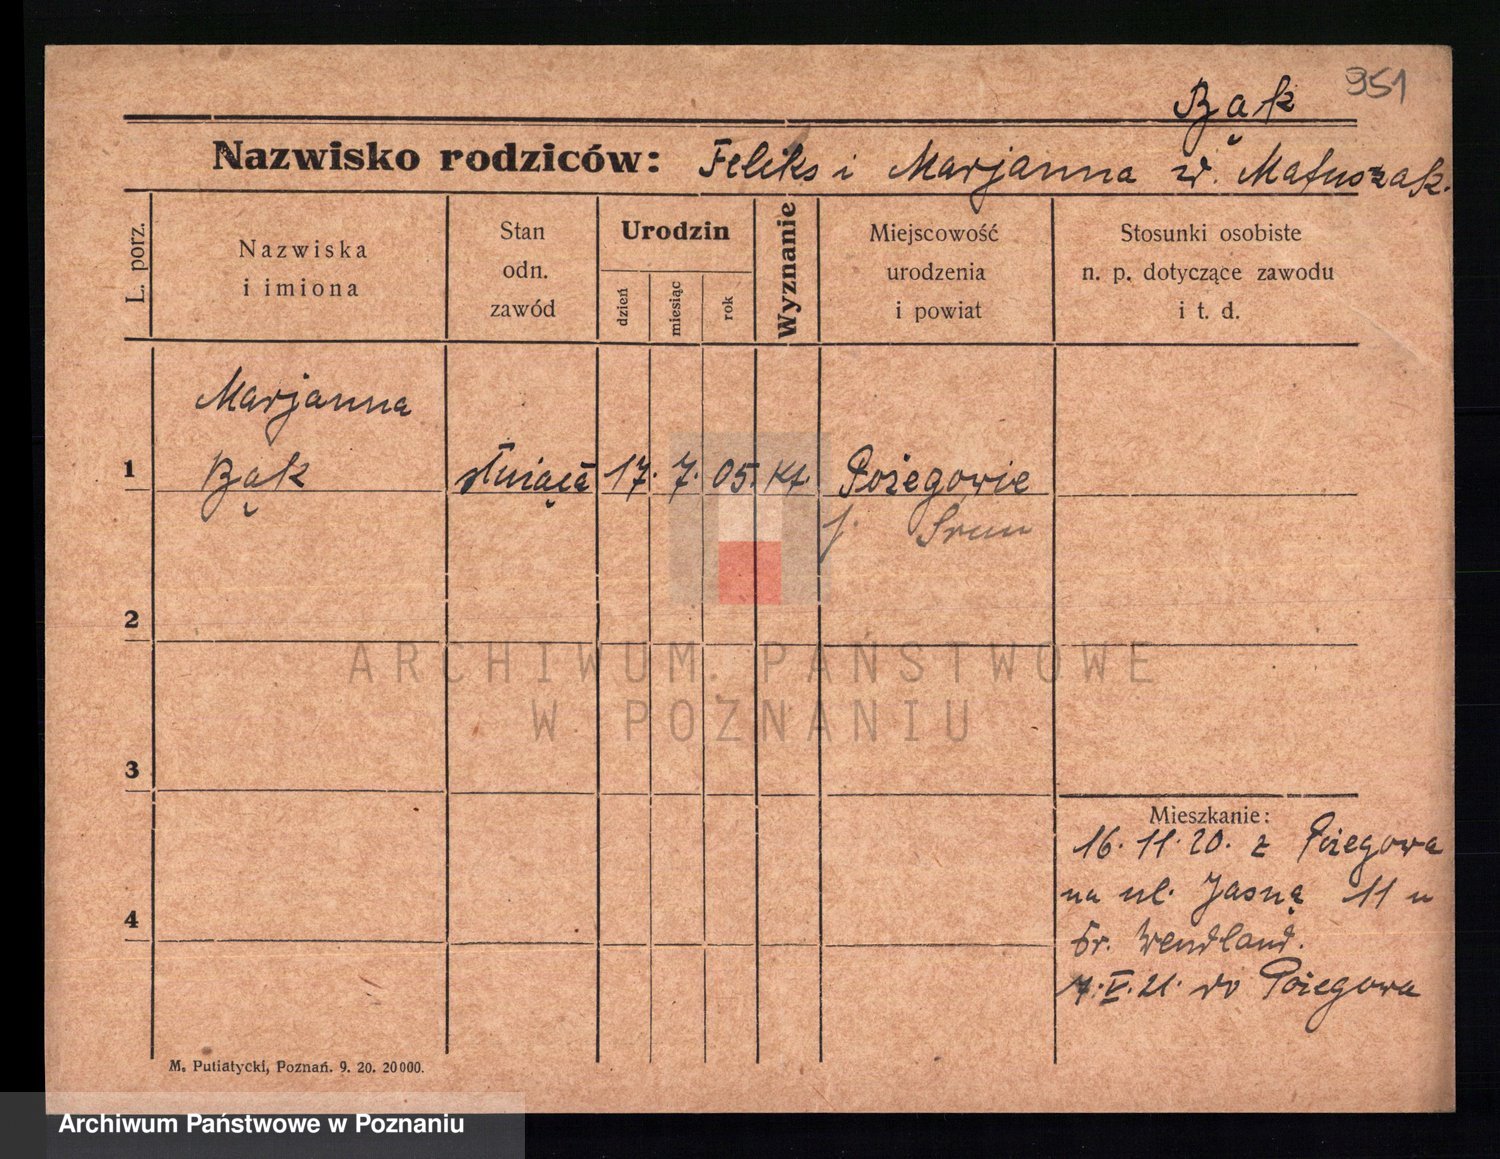 951
Bąk
Nazwisko rodziców: Feliks i Marjanna z d. Matuszak.
L. porz.
Nazwiska
i imiona
Stan
odn.
zawód
Urodzin
dzień
miesiąc
rok
Wyznanie
Miejscowość
urodzenia
i powiat
Stosunki osobiste
n. p. dotyczące zawodu
i t. d.
Marjanna
1 Bąk służąca 17. 7. 05. kt. Pożegowie
Śrem
2
3
4
Mieszkanie:
16. 11. 20. z Pożegowa
na ul. Jasną 11 u
Fr. Wendland.
7. V. 21. do Pożegowa
M. Putiatycki, Poznań. 9. 20. 20 000.
ARCHIWUM PAŃSTWOWE
W POZNANIU
Archiwum Państwowe w Poznaniu